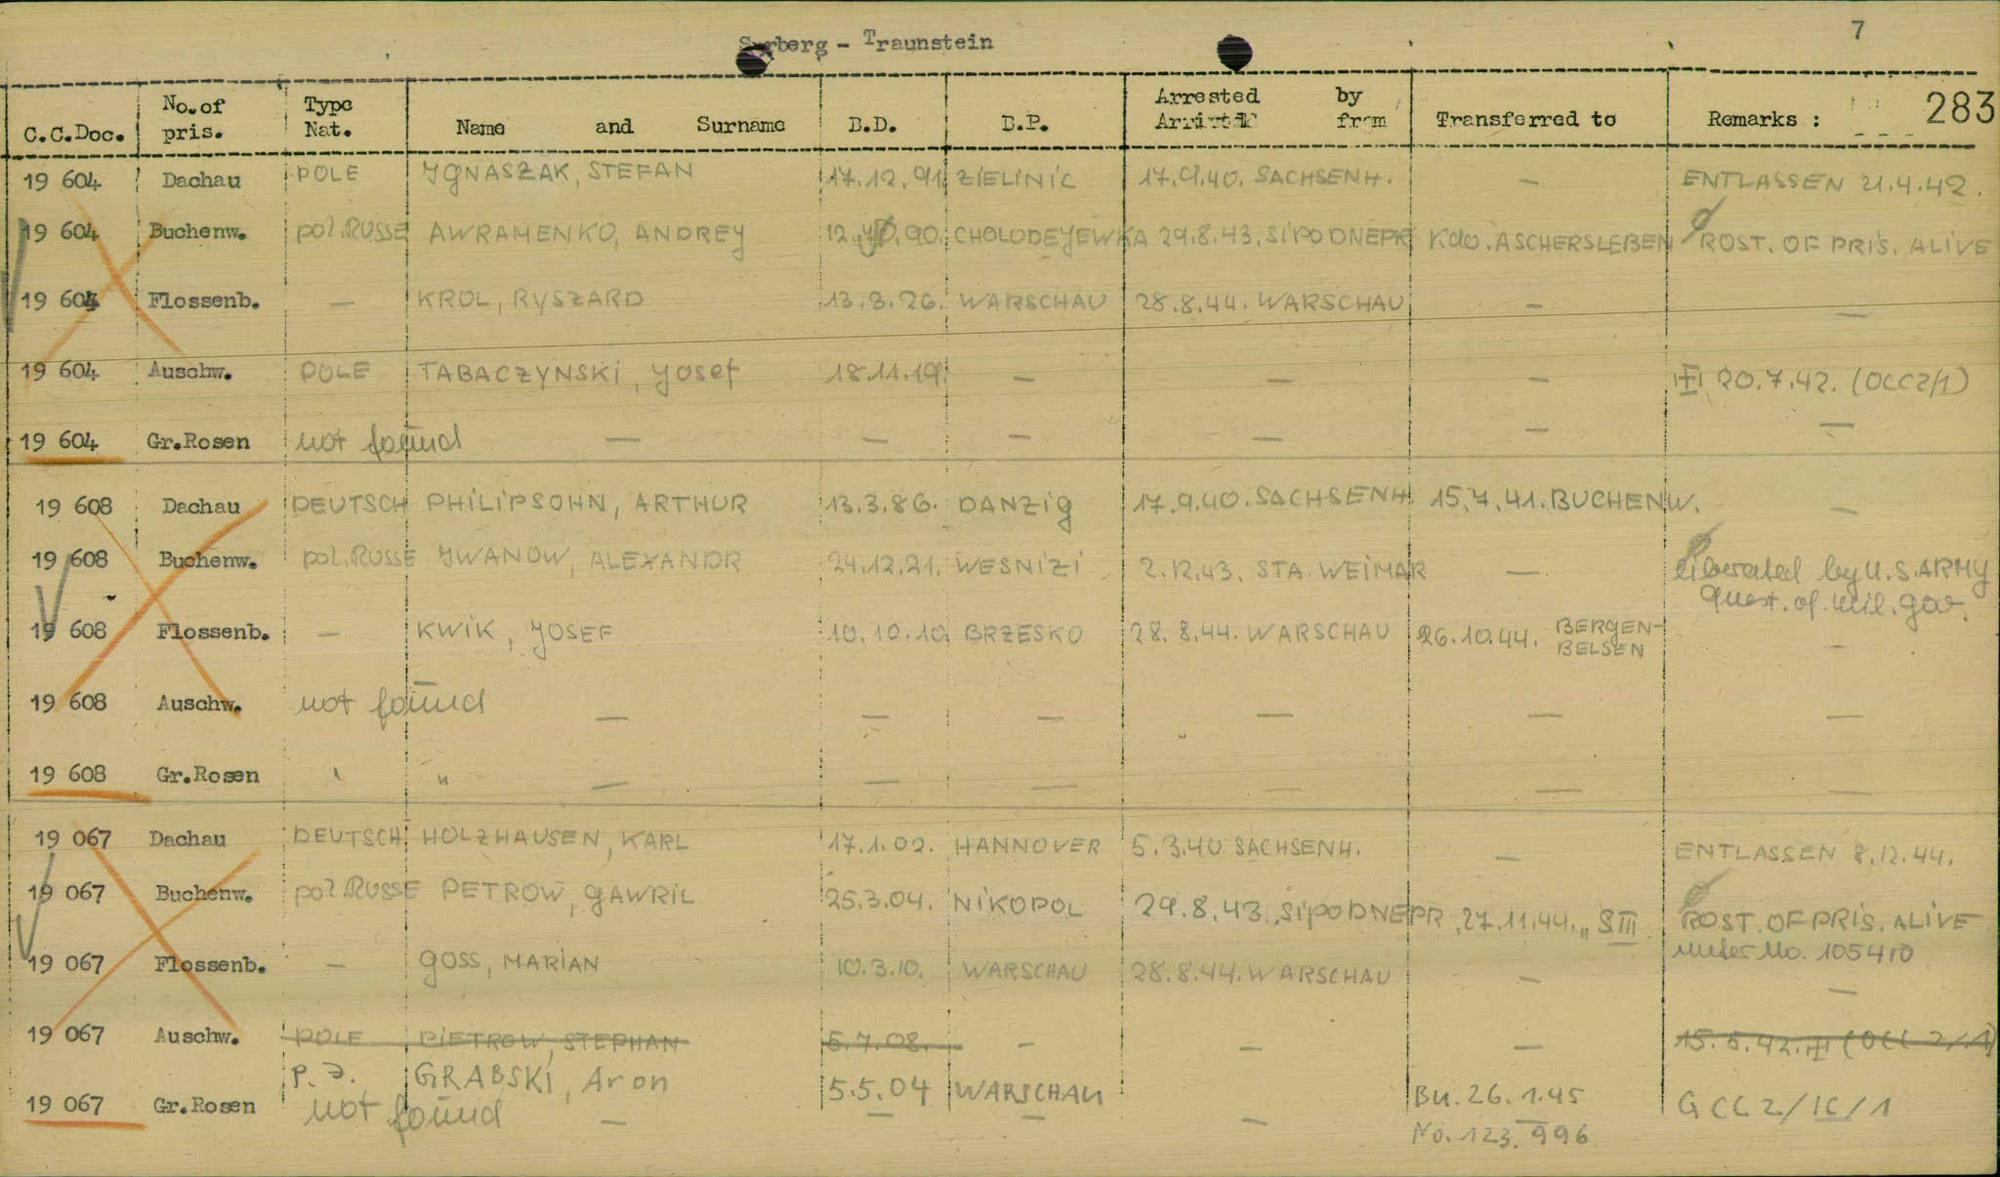 Surberg - Traunstein
7
C.C.Doc. No.of pris. Type Nat. Name and Surname B.D. B.P. Arrested by Arrived from Transferred to Remarks : 283
19 604 Dachau POLE YGNASZAK, STEFAN 17.12.91. ZIELINIC 17.9.40. SACHSENH. — ENTLASSEN 21.4.42.
19 604 Buchenw. pol.RUSSE AWRAMENKO, ANDREY 12. .90. CHOLODEJEWKA 29.8.43. SIPO DNEPR Kdo. ASCHERSLEBEN ROST. OF PRIS. ALIVE
19 604 Flossenb. — KROL, RYSZARD 13.8.26. WARSCHAU 28.8.44. WARSCHAU — —
19 604 Auschw. POLE TABACZYNSKI, Josef 18.11.19. — — — 20.7.42. (OCC2/1)
19 604 Gr.Rosen not found — — — — — —
19 608 Dachau DEUTSCH PHILIPSOHN, ARTHUR 13.3.86. DANZIG 17.9.40. SACHSENH. 15.7.41. BUCHENW. —
19 608 Buchenw. pol.RUSSE JWANOW, ALEXANDR 24.12.21. WESNIZI 2.12.43. STA. WEIMAR — Liberated by U.S.ARMY
Quest. of. mil. gov.
19 608 Flossenb. — KWIK, JOSEF 10.10.10. BRZESKO 28.8.44. WARSCHAU 26.10.44. BERGEN-
BELSEN —
19 608 Auschw. not found — — — — — —
19 608 Gr.Rosen " " — — — — — —
19 067 Dachau DEUTSCH HOLZHAUSEN, KARL 17.1.02. HANNOVER 5.3.40 SACHSENH. — ENTLASSEN 8.12.44.
19 067 Buchenw. pol.RUSSE PETROW, GAWRIL 25.3.04. NIKOPOL 29.8.43. SIPO DNEPR 27.11.44. " S III ROST. OF PRIS. ALIVE
under No. 105410
19 067 Flossenb. — GOSS, MARIAN 10.3.10. WARSCHAU 28.8.44. WARSCHAU — —
19 067 Auschw. POLE PIETROW, STEPHAN 5.7.08. — — — 15.5.42. (OCC 2/1)
P. J. GRABSKI, Aron 5.5.04 WARSCHAU Bu. 26.1.45 GCC 2/IC/1
19 067 Gr.Rosen not found — — — —
No. 123.996